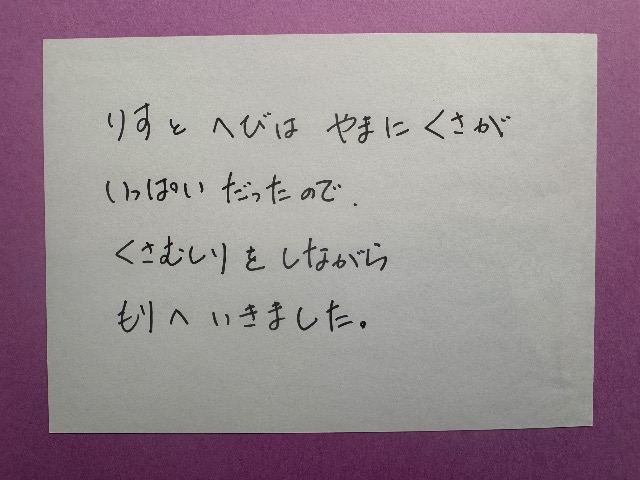 りすと へびは やまに くさが
いっぱい だったので、
くさむしりを しながら
もりへ いきました。